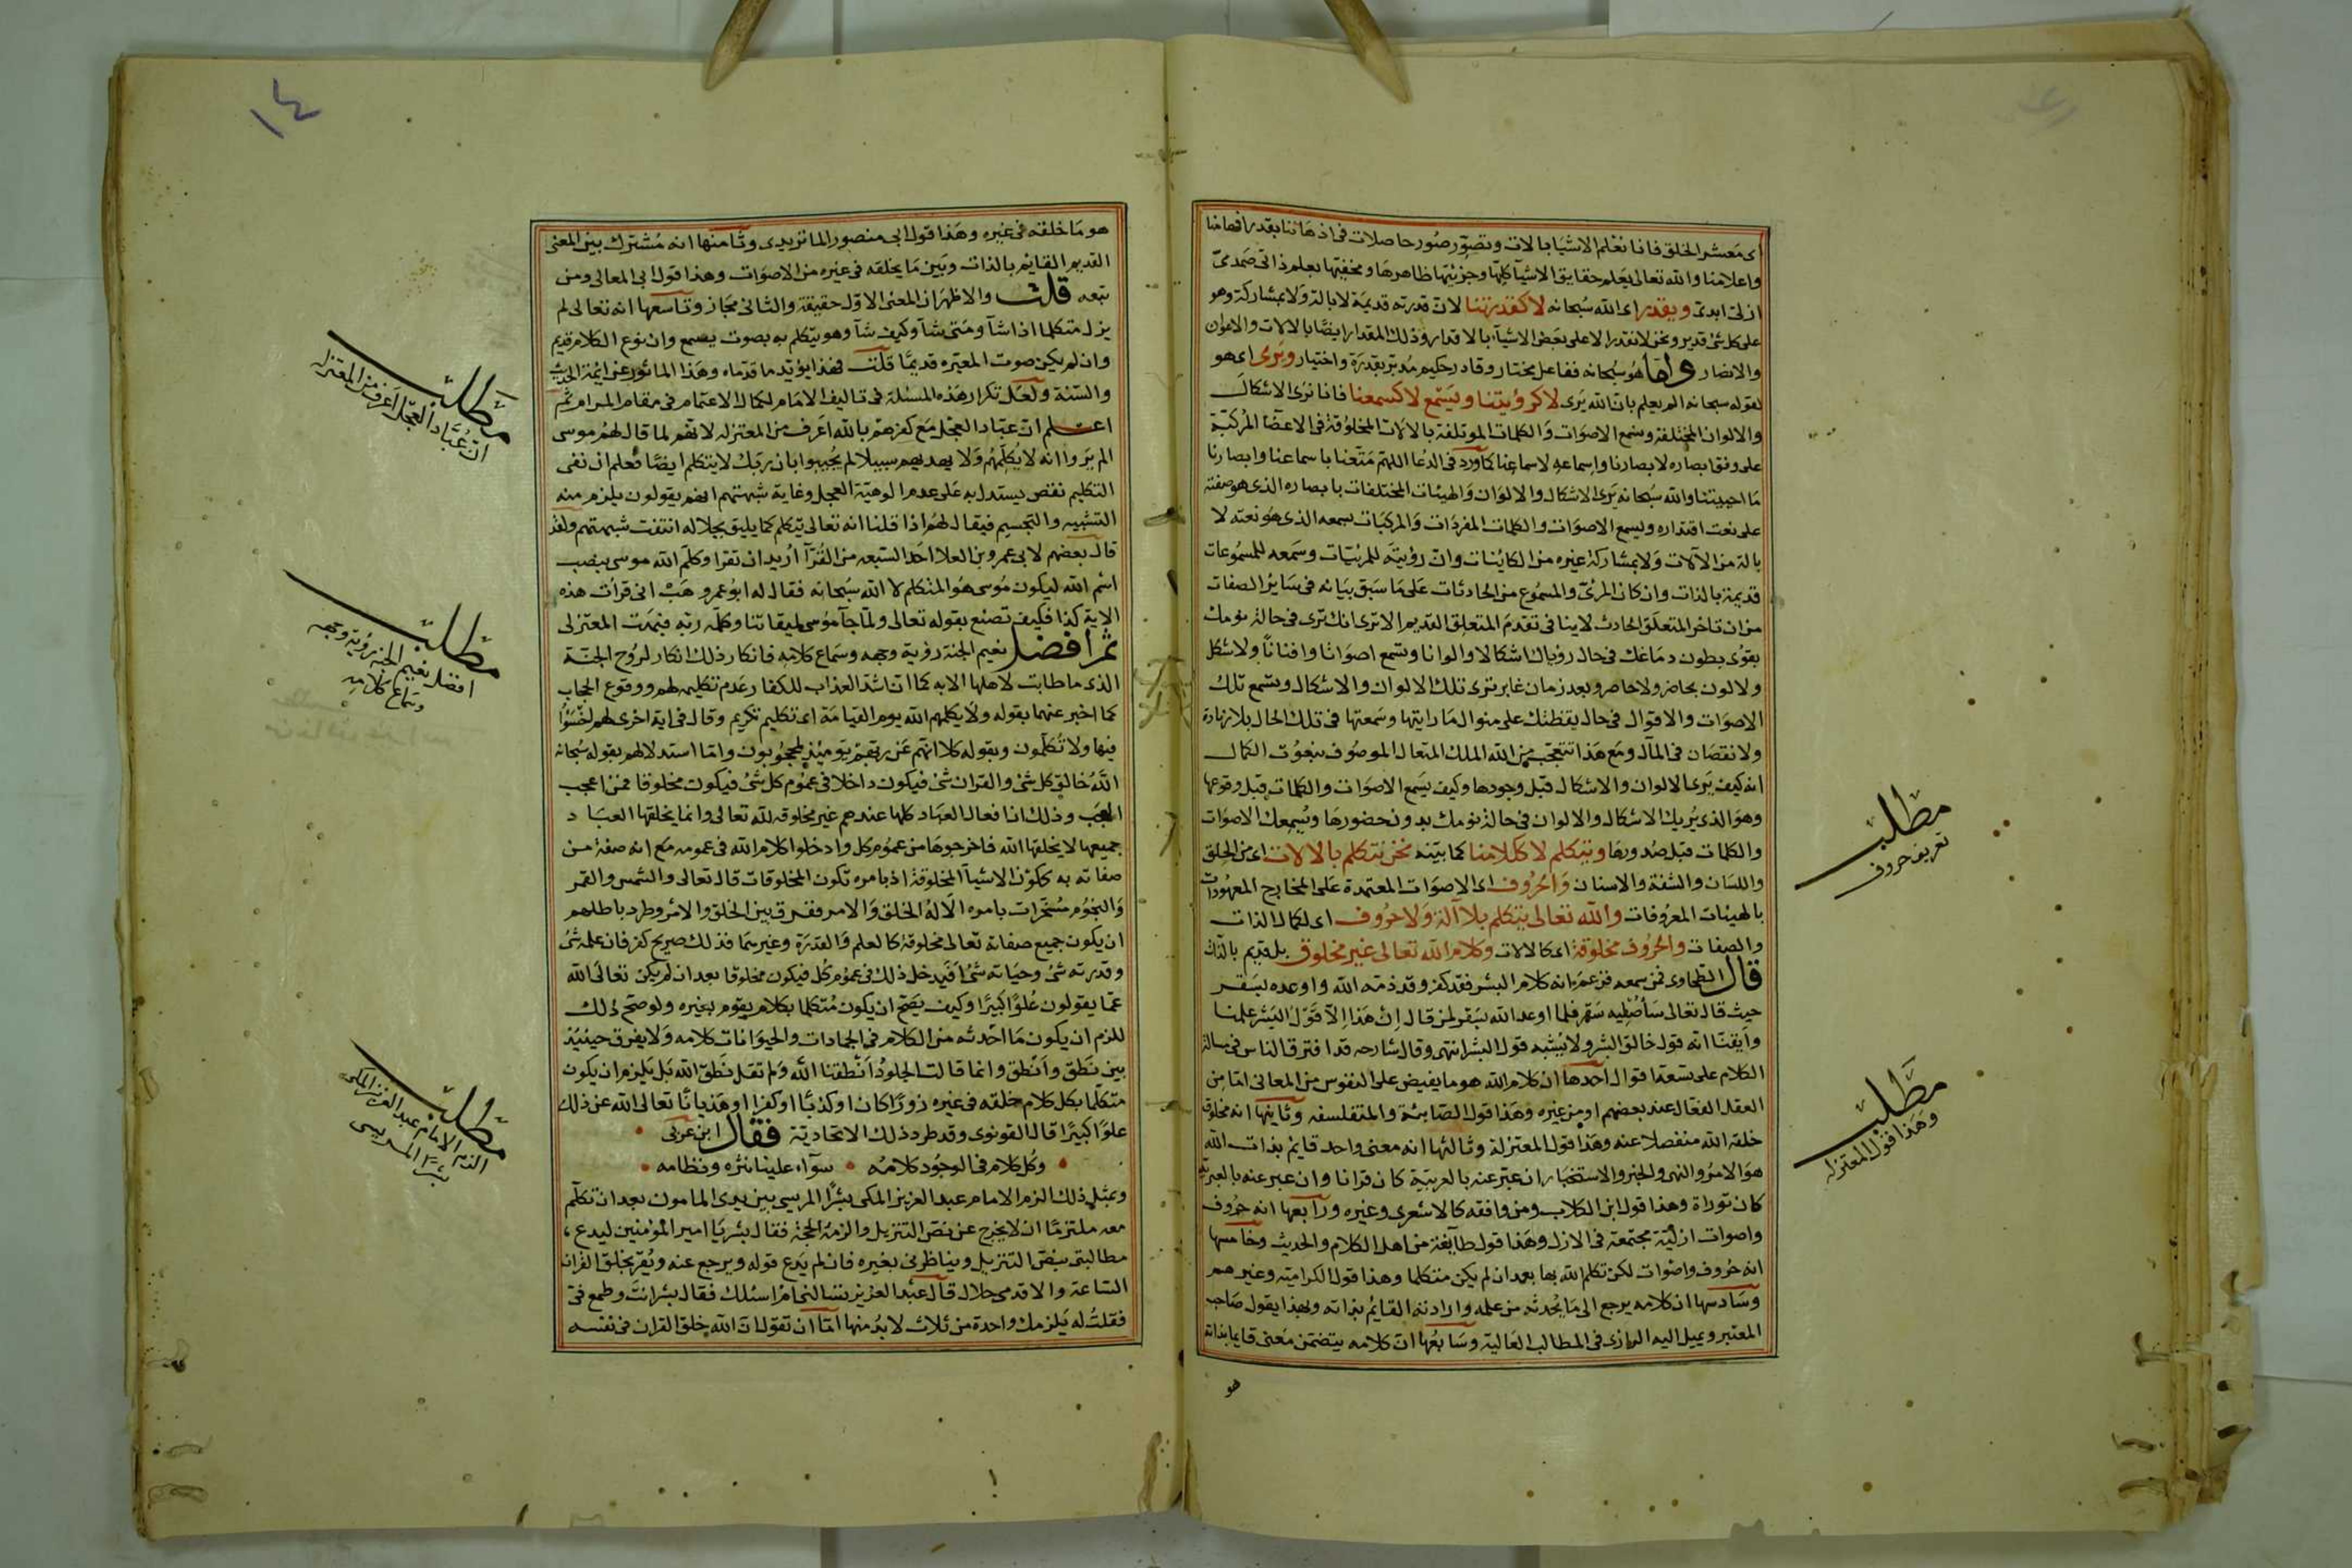 اى مَعشر الخلق فانا نعلم الاشيا بالات وتصوّر صُور حاصلات فى اذهاننا بقدر افهامنا
واعلامنا والله تعالى يعلم حقايق الاشيآ كليّها وجزئيّها ظاهرها ومخفيّها بعلم ذاتى صَمَدىّ
ازلى ابدى ويقدر اى الله سُبحانه لا كقدرتنا لانّ قدرته قديمة لا بالة ولا بمشاركة وهو
على كل شئ قدير ونحن لا نقدر الا على بعض الاشيآء بالاقدار وذلك المقدار ايضًا بالالات والاعوان
والانصار واما هو سبحانه ففاعل مختار وقادر حكيم مُدبّر بقدرَة واختيار ويَرى اى هو
لقوله سبحانه الم يعلم بانّ الله يَرى لا كرؤيتنا ويَسمَع لا كسمعنا فانا نرى الاشكال
والالوان المختلفة ونسمع الاصوَات وَالكلمات الموتلفة بالالات المخلوقة فى الاعضا المركبّة
على وفق ابصاره لا بصارنا واسماعه لاسماعنا كما ورد فى الدعا اللهمّ مَتّعنا باسماعنا وابصارنا
مَا احييتنا والله سُبحانه يَرى الاشكال والالوَان وَالهيئات المختلفات بابصاره الذى هو صفته
على نعت اقتداره ويسمع الاصوَات والكلمات المفردَات وَالمركبَات بسمعه الذى هُو نعته لا
بالة من الآلات وَلا بمشاركة غيره من الكاينات وانّ رؤيتَه للمرئيات وسَمعه للمسمُوعات
قديمة بالذات وان كان المرئىّ والمسمُوع من الحادثات عَلى مَا سَبق بيَانه فى سَايرُ الصفات
من ان تاخر المتعلّق الحادث لا ينافى تقدم المتعلِق القديم الا ترى انك ترى فى حالة نومك
بقوى بطون دمَاغك فى حال رؤياك اشكالا والوانا وتسمع اصوَاتا وافنانًا ولا شكل
ولا لون بحاضر ولا حاصر وبعد زمان غابر ترى تلك الالوان والاشكال وتسمع تلك
الاصوَات والاقوال فى حال يقظتك على منوال مَا رايتها وسَمعتها فى تلك الحال بلا زيادة
ولا نقصَان فى المآل ومَع هَذا تتعجّب من الله الملك المتعال الموصُوف بنعُوت الكمال
انه كيف يَرى الالوان والاشكال قبل وجودها وكيف يسَمع الاصوَات والكلمات قبل وقوعها
وهوَ الذى يُريك الاشكال والالوان فى حالة نومك بدون حضورهَا ويُسمعك الاصوَات
والكلمات قبل صُدورهَا ويتكلم لا ككلامنا كما بيّنه نحن نتكلم بالالات اى من الحلق
واللسَان والشفة والاسنان وَالحُرُوف اى الاصوَات المعتمدة عَلى المخارج المعهُودات
بالهيئات المعرُوفات والله تعالى يتكلم بلا آلة وَلا حرُوف اى لكمال الذات
والصفات والحرُوف مخلوقة اى كالالات وكلام الله تعالى غير مخلوق بل قديم بالذات
قال الطحاوى فمن سمعه فزعمَ انه كلام البشر فقد كفر وقد ذمّه الله واوعده بسَقر
حيث قال تعالى سَاُصْلِيه سَقَر فلما اوعد الله بسَقر لمن قال اِنْ هَذا اِلَّا قَوْلُ البَشَر علمنا
وأيقنّا انه قول خالق البشر ولا يُشبه قول البشر انتهى وقال شارحه قد افترق الناس فى مسالة
الكلام على تسعة اقوال احدها ان كلام الله هو ما يفيض على النفوس من المعانى امّا من
العقل الفعّال عند بعضهم او من غيره وهَذا قول الصّابئة والمتفلسفه وثانيها انه مخلوق
خلقه الله منفصلا عنه وهَذا قول المعتزلة وثالثها انه معنى واحد قايم بذات الله
هوَ الامرُ والنهى والخبر والاستخبَار ان عبّر عنه بالعربيّة كان قرانا وان عبر عنه بالعبريّة
كان توراة وهذا قول ابن الكلاب ومن وافقه كالاشعرى وغيره ورابعها انه حرُوف
واصوات ازليّة مجتمعة فى الازل وهَذا قول طايفة من اهل الكلام والحديث وخامسها
انه حُروف واصْوات لكن تكلم الله بها بعد ان لم يكن متكلما وهذا قول الكراميّه وغيرهم
وسَادسها ان كلامه يرجع الى مَا يُحدثه من علمه وارادته القايم بذاته وبهذا يقول صَاحب
المعتبر ويميل اليه الرازى فى المطالب العَالية وسَابعُها انّ كلامه يتضمن مَعنى قايما بذاته
هو
مطلب
تعريف حروف
مطلب
وهذا قول المعتزله
١٤
هو مَا خلقه فى غيره وهَذا قول ابى منصور الماتريدى وثامنها انه مُشترك بين المعنى
القديم القايم بالذات وبَين مَا يخلقه فى غيره من الاصوَات وهذا قول ابى المعالى ومن
تبعه قلت والاظهر ان المعنى الاوّل حقيقة والثانى مجَاز وتاسعها انه تعالى لم
يزل متكلما اذا شآ ومَتى شآ وكيف شآ وهو يتكلم به بصوت يسمع وان نوع الكلام قديم
وان لم يكن صوت المعيّن قديمًا قلت فهذا يؤيّد ما قدّمناه وهَذا الماثور عن ايمّة الحديث
والسّنّة ولعَل تكرار هَذه المسئلة فى تاليف الامَام لكمال الاهتمام فى مقام المرام ثم
اعلم انّ عبّاد العجل مَع كفرهم بالله اعَرف من المعتزله لانهم لما قال لهمُ موسى
الم يَروا انه لا يُكلّمهُم وَلا يهديهم سبيلا لم يُجيبوا بان ربّك لا يتكلم ايضًا فعلم ان نفى
التكليم نقص يستدل به عَلى عدم الوهيّة العجل وغاية شبهتهم انهم يقولون يلزم منه
التشبيه والتجسيم فيقال لهُم اذا قلنا انه تعالى يتكلم كما يليق بجلاله انتفت شبهتهم ولقد
قال بعضهم لابى عمرو بن العلا احَد السّبعه من القُرّآ اُريد ان تقرا وكلّم الله موسى بنصب
اسْم الله ليكون مُوسى هُو المتكلم لا الله سبحانه فقال له ابوُ عمرو هَبْ انى قرأت هذه
الاية كذا فكيف تصنع بقوله تعالى ولمّا جآ مُوسى لميقاتنا وكلّمه ربّه فبهت المعتزلى
ثم افضل نعيم الجنة رؤية وجهه وسَماع كلامه فانكار ذلك انكار لرُوح الجنّة
الذى ما طابت لاهلها الا به كما انّ اشدّ العذاب للكفار عَدم تكليمه لهم ووقوع الحجاب
كما اخبر عنهما بقوله وَلا يكلمهم الله يوم القيامَة اى تكليم تكريم وقال فى اية اخرى لهم اخسَئوا
فيها ولا تُكلّمون وبقوله كلا انّهم عَن ربّهم يَومئذ لمحجُوبون وامّا استدلالهم بقوله سُبحانه
اللّهُ خالق كل شئ والقران شئ فيكون داخلا فى عمُوم كل شئ فيكون مخلوقا فمن اعجب
العجَب وذلك ان افعال العبَاد كلها عندهم غير مخلوقه لله تعالى وانما يخلقها العبَاد
جميعها لا يخلقها الله فاخرجوهَا من عمُوم كل وادخلوا كلام الله فى عمومه مَع انه صفة من
صفاته به تكوّن الاشيآ المخلوقة اذ بامره تكون المخلوقات قال تعالى والشمس والقمر
وَالنجُوم مُسَخّرات بامره الَا لَهُ الخلق وَالامر ففرق بين الخلق والامر وطرد باطلهم
ان يكون جميع صفاته تعَالى مخلوقة كالعلم وَالقدرَة وغيرهمَا فذلك صريح كفر فان علمه شئ
وقدرته شئ وحيَاته شئ اَفَيدخل ذلك فى عمُوم كُل فيكون مخلوقا بعد ان لم يكن تعَالى الله
عمّا يقولون عُلوًا كبيرًا وكيف يَصحّ ان يكون مُتكلما بكلام يقوم بغيره ولو صَحّ ذلك
للزم ان يكون مَا احْدثه من الكلام فى الجمادات والحيوَانات كلامه وَلا يفرق حينئذ
بين نَطَق وأنطَق وانما قالت الجلودُ اَنْطقنا الله وَلم تقل نَطَقَ الله بَل يَلزم ان يكون
متكلّما بكل كلام خلقه فى غيره زورًا كان او كذبًا او كفرا او هَذيانًا تعالى الله عن ذلك
علوًا كبيرًا قال القونوى وقد طرد ذلك الاتحاديّة فقال ابن عربى
وكُل كلام فى الوجُود كلامُه سوآء علينا نثره ونظامه
وبمثل ذلك الزم الامام عبد العزيز المكى بشرًا المريسى بين يدى المامون بعد ان تكلّم
معه ملتزمًا ان لا يخرج عن نصّ التنزيل والزمَهُ الحجة فقال بشر يا امير المؤمنين ليدع
مطالبتى بنصّ التنزيل ويناظرنى بغيره فان لم يَدع قوله ويرجع عنه ويُقرّ بخلق القران
السّاعة والا فدمى حلال قال عبْد العزيز تسالنى ام اسئلك فقال بشر انتَ وطمع فىّ
فقلتُ له يَلزمك واحدة من ثلاث لا بُد منها امّا ان تقول انّ الله خلق القران فى نفسه
مطلب
ان عُبّاد العجل اعرف من المعتزله
مطلب
افضل نعيم الجنه رؤية وجهه
وسَماع كلامه
مطلب
الزم الامام عبد العزيز المكى
بشرا المريسى